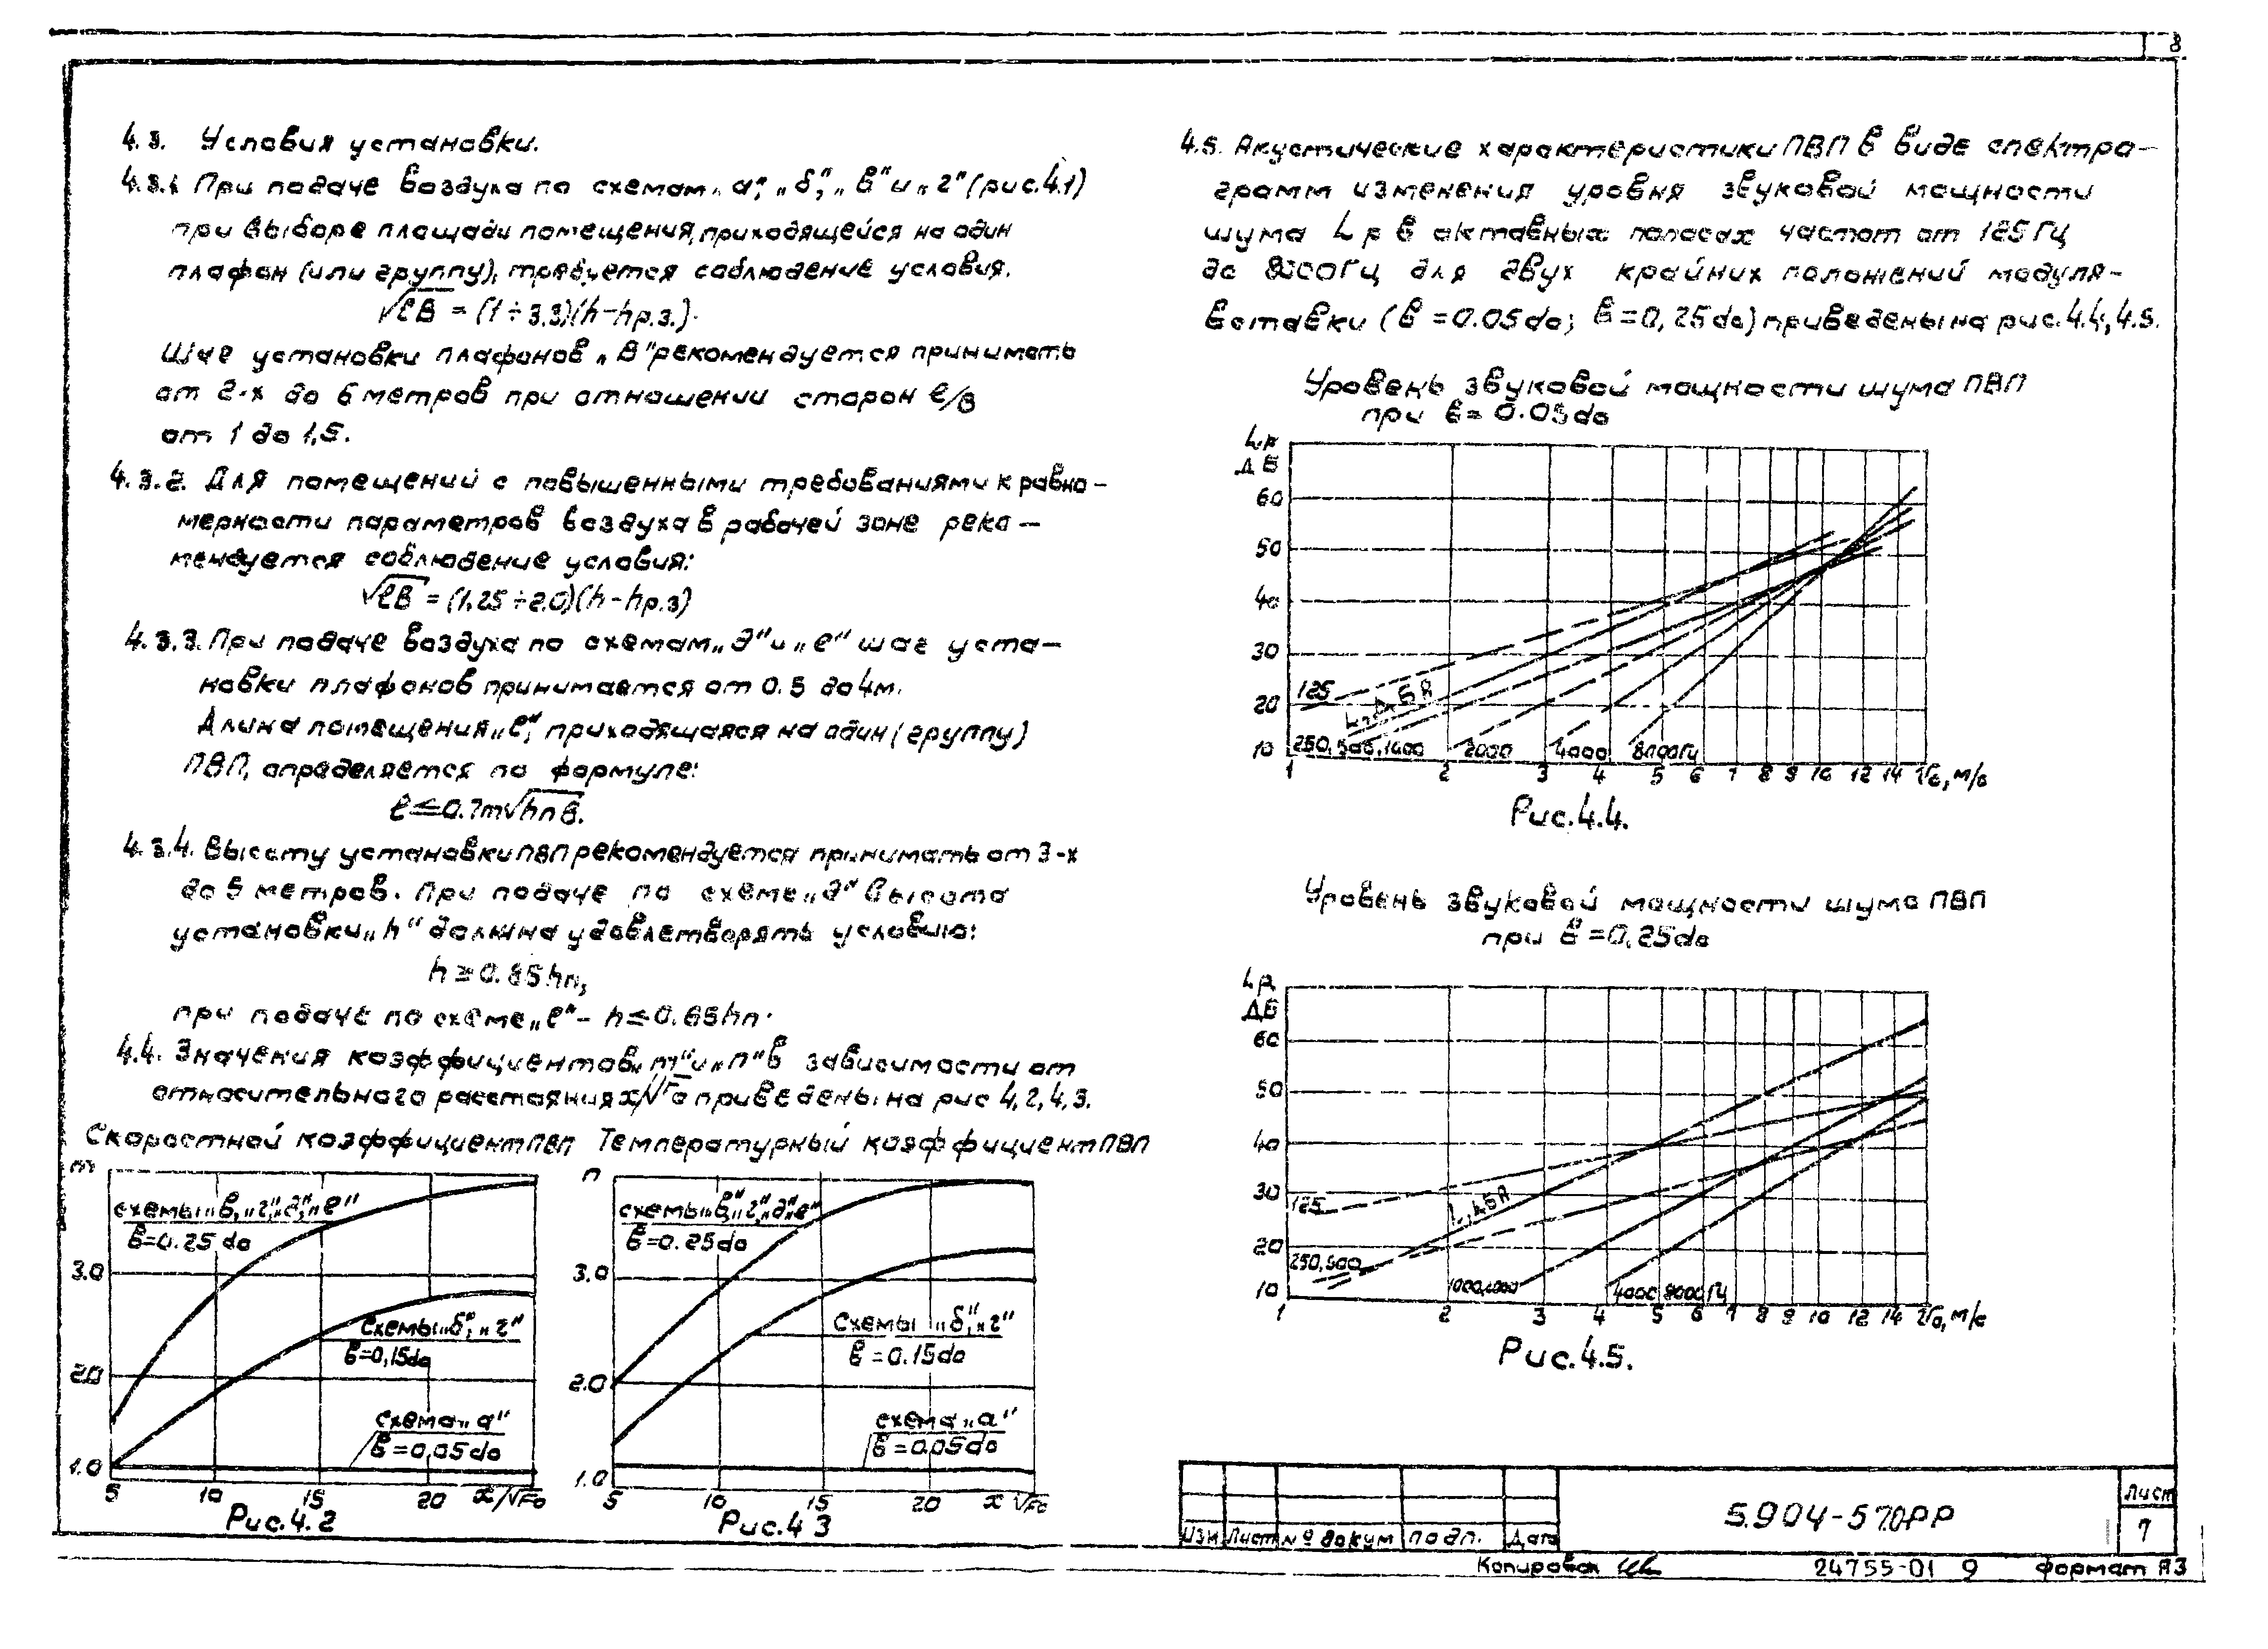 8
4.3. Условия установки.
4.3.1 При подаче воздуха по схемам „а”, „б”, „в” и „г” (рис.4.1)
при выборе площади помещения, приходящейся на один
плафон (или группу), требуется соблюдение условия.
√ℓв = (1÷3.3)(h-hр.з.).
Шаг установки плафонов „в” рекомендуется принимать
от 2-х до 6 метров при отношении сторон ℓ/в
от 1 до 1,5.
4.3.2. Для помещений с повышенными требованиями к равно-
мерности параметров воздуха в рабочей зоне реко-
мендуется соблюдение условия:
√ℓв = (1,25÷2.0)(h-hр.з)
4.3.3. При подаче воздуха по схемам „д” и „е” шаг уста-
новки плафонов принимается от 0.5 до 4м.
Длина помещения „ℓ”, приходящаяся на один (группу)
ПВП, определяется по формуле:
ℓ≤0.7m√hпв.
4.3.4. Высоту установки ПВП рекомендуется принимать от 3-х
до 5 метров. При подаче по схеме „д” высота
установки „h” должна удовлетворять условию:
h≥0.85hп,
при подаче по схеме „е” - h≤0.65hп.
4.4. Значения коэффициентов „m” и „п” в зависимости от
относительного расстояния x/√Fо приведены на рис 4,2,4,3.
Скоростной коэффициент ПВП
m
схемы „в”, „г”, „д”, „е”
в=0.25 dо
3.0
схемы „б”, „г”
в=0,15dо
2.0
схема „а”
в=0,05dо
1.0
5 10 15 20 x/√Fо
Рис.4.2
Температурный коэффициент ПВП
п
схемы „в”, „г”, „д”, „е”
в=0.25dо
3.0
схемы „б”, „г”
в=0.15dо
2.0
схема „а”
в=0.05dо
1.0
5 10 15 20 x √Fо
Рис.4 3
4.5. Акустические характеристики ПВП в виде спектро-
грамм изменения уровня звуковой мощности
шума Lр в октавных полосах частот от 125 Гц
до 8000Гц для двух крайних положений модуля-
вставки (в=0.05dо; в=0,25dо) приведены на рис.4.4, 4.5.
Уровень звуковой мощности шума ПВП
при в=0.05dо
Lр
ДБ
60
50
40
30
20
10
125
L, ДБА
250,500,1000 2000 4000 8000Гц
1 2 3 4 5 6 7 8 9 10 12 14 Vо, м/с
Рис.4.4.
Уровень звуковой мощности шума ПВП
при в=0,25dо
Lр
ДБ
60
50
40
30
20
10
125
L, ДБА
250,500
1000,2000 4000 8000Гц
1 2 3 4 5 6 7 8 9 10 12 14 Vо, м/с
Рис.4.5.
Изм Лист № докум подп. Дата
5.904-57.0РР
Лист
7
Копировал
24755-01 9
Формат А3